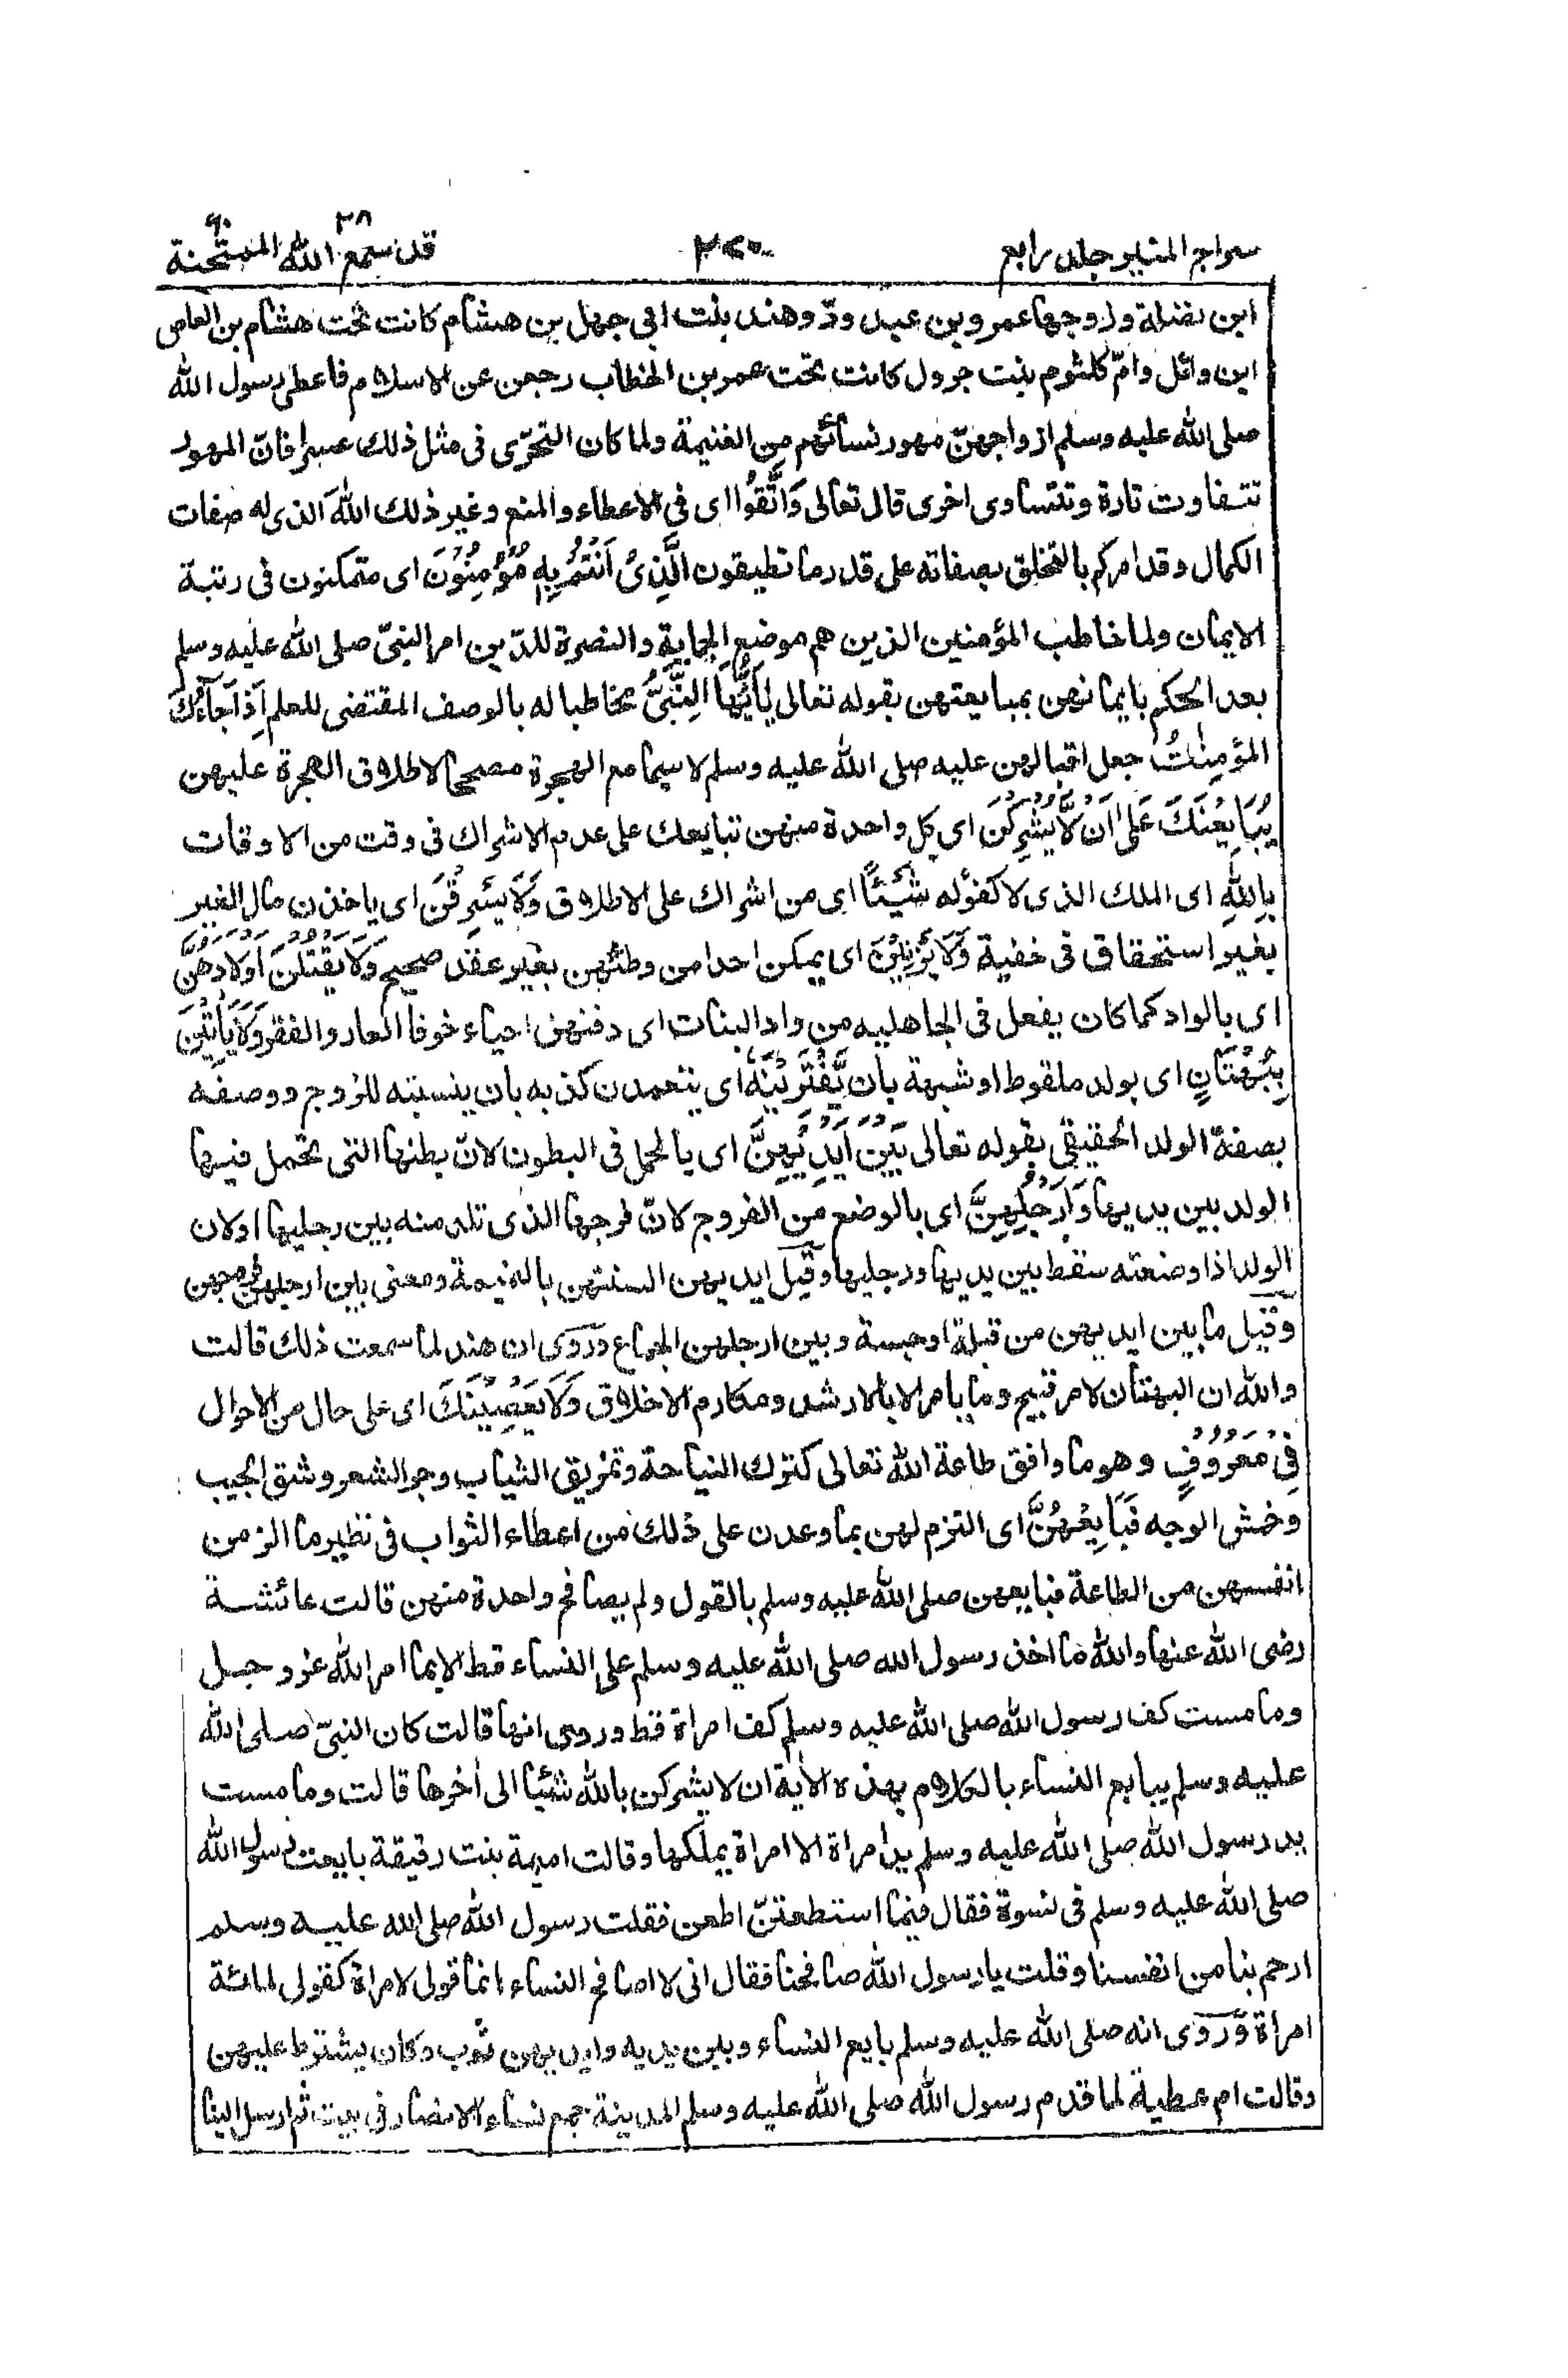 سراج المنير جلد رابع ٢٧٠ قد سمع الله ٢٨ الممتحنة ٦٠
ابن نضلة وزوجها عمرو بن عبد ودّ وهند بنت ابى جهل بن هشام كانت تحت هشام بن العاص
ابن وائل وامّ كلثوم بنت جرول كانت تحت عمر بن الخطاب رجعن عن الاسلام فاعطى رسول الله
صلى الله عليه وسلم ازواجهنّ مهور نسائهم من الغنيمة ولما كان التحرّى فى مثل ذلك عسيرا فانّ المهور
تتفاوت تارة وتتساوى اخرى قال تعالى وَاتَّقُوا اى فى الاعطاء والمنع وغير ذلك اللهَ الذى له صفات
الكمال وقد امركم بالتخلق بصفاته على قدر ما تطيقون الَّذِىْ اَنْتُمْ بِهٖ مُؤْمِنُوْنَ اى متمكنون فى رتبة
الايمان ولما خاطب المؤمنين الذين هم موضع الحماية والنصرة للدّين امر النبىّ صلى الله عليه وسلم
بعد الحكم بايمانهن بمبايعتهن بقوله تعالى يٰاَيُّهَا النَّبِىُّ مخاطبا له بالوصف المقتضى للعلم اِذَا جَاءَكَ
المؤمِنٰتُ جعل اقبالهن عليه صلى الله عليه وسلم لاسيما مع الهجرة مصححا لاطلاق الهجرة عليهن
يُبَايِعْنَكَ عَلٰى اَنْ لَّا يُشْرِكْنَ اى كل واحدة منهن تبايعك على عدم الاشراك فى وقت من الاوقات
بِاللهِ اى الملك الذى لا كفؤ له شَيْئًا اى من اشراك على الاطلاق وَلَا يَسْرِقْنَ اى ياخذن مال الغير
بغير استحقاق فى خفية وَلَا يَزْنِيْنَ اى يمكن احدا من وطئهن بغير عقد صحيح وَلَا يَقْتُلْنَ اَوْلَادَهُنَّ
اى بالواد كما كان يفعل فى الجاهليه من واد البنات اى دفنهن احياء خوفا العار والفقر وَلَا يَاْتِيْنَ
بِبُهْتَانٍ اى بولد ملقوط او شبهة بان يَّفْتَرِيْنَهٗ اى يتعمدن كذبه بان ينسبنه للزوج ووصفه
بصفة الولد الحقيقى بقوله تعالى بَيْنَ اَيْدِيْهِنَّ اى بالحمل فى البطون لانّ بطنها التى تحمل فيها
الولد بين يديها وَاَرْجُلِهِنَّ اى بالوضع من الفروج لانّ فرجها الذى تلد منه بين رجليها اولان
الولد اذا وضعته سقط بين يديها ورجليها وقيل ايديهن السنتهن بالنميمة ومعنى بين ارجلهن فروجهن
وقيل ما بين ايديهن من قبلة او جسة وبين ارجلهن الجماع وروى ان هند لما سمعت ذلك قالت
والله ان البهتان لامر قبيح وما يامر الا بالارشد ومكارم الاخلاق وَلَا يَعْصِيْنَكَ اى على حال من الاحوال
فِىْ مَعْرُوْفٍ وهو ما وافق طاعة الله تعالى كترك النياحة وتمزيق الثياب وجز الشعر وشق الجيب
وخمش الوجه فَبَايِعْهُنَّ اى التزم لهن بما وعدن على ذلك من اعطاء الثواب فى نظير ما الزمن
انفسهن من الطاعة فبايعهن صلى الله عليه وسلم بالقول ولم يصافح واحدة منهن قالت عائشة
رضى الله عنها والله ما اخذ رسول الله صلى الله عليه وسلم على النساء قط الا بما امر الله عز وجل
وما مست كف رسول الله صلى الله عليه وسلم كف امراة قط وروى انها قالت كان النبىّ صلى الله
عليه وسلم يبايع النساء بالكلام بهذه الاية ان لا يشركن بالله شيئا الى أخرها قالت وما مست
يد رسول الله صلى الله عليه وسلم يد امراة الا امراة يملكها وقالت اميمة بنت رقيقة بايعت رسول الله
صلى الله عليه وسلم فى نسوة فقال فيما استطعتنّ اطعن فقلت رسول الله صلى الله عليه وسلم
ارحم بنا من انفسنا وقلت يا رسول الله صافحنا فقال انى لا اصافح النساء انما قولى لامراة كقولى لمائة
امراة وروى انه صلى الله عليه وسلم بايع النساء وبين يديه وايديهن ثوب وكان يشترط عليهن
وقالت ام عطية لما قدم رسول الله صلى الله عليه وسلم المدينة جمع نساء الانصار فى بيت ثم ارسل الينا